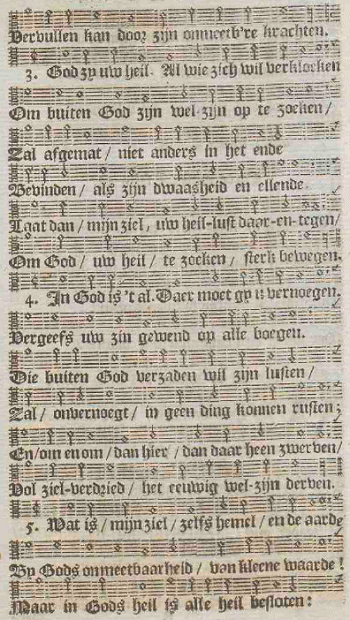 Vervullen kan door zijn onmeetb're krachten.
3. God zy uw heil. Al wie zich wil verkloeken
Om buiten God zijn wel-zijn op te zoeken /
Zal afgemat / niet anders in het ende
Bevinden / als zijn dwaasheid en ellende.
Laat dan / mijn ziel, uw heil-lust daar-en-tegen /
Om God / uw heil / te zoeken / sterk bewegen.
4. In God is 't al. Daer moet gy u vernoegen,
Vergeefs uw zin gewend op alle boegen.
Die buiten God verzaden wil zijn lusten /
Zal / onvernoegt / in geen ding konnen rusten;
En / om en om / dan hier / dan daar heen zwerven /
Vol ziel-verdried / het eeuwig wel-zijn derven.
5. Wat is / mijn ziel / zelfs hemel / en de aarde
By Gods onmeetbaarheid / van kleene waarde!
Maar in Gods heil is alle heil besloten: